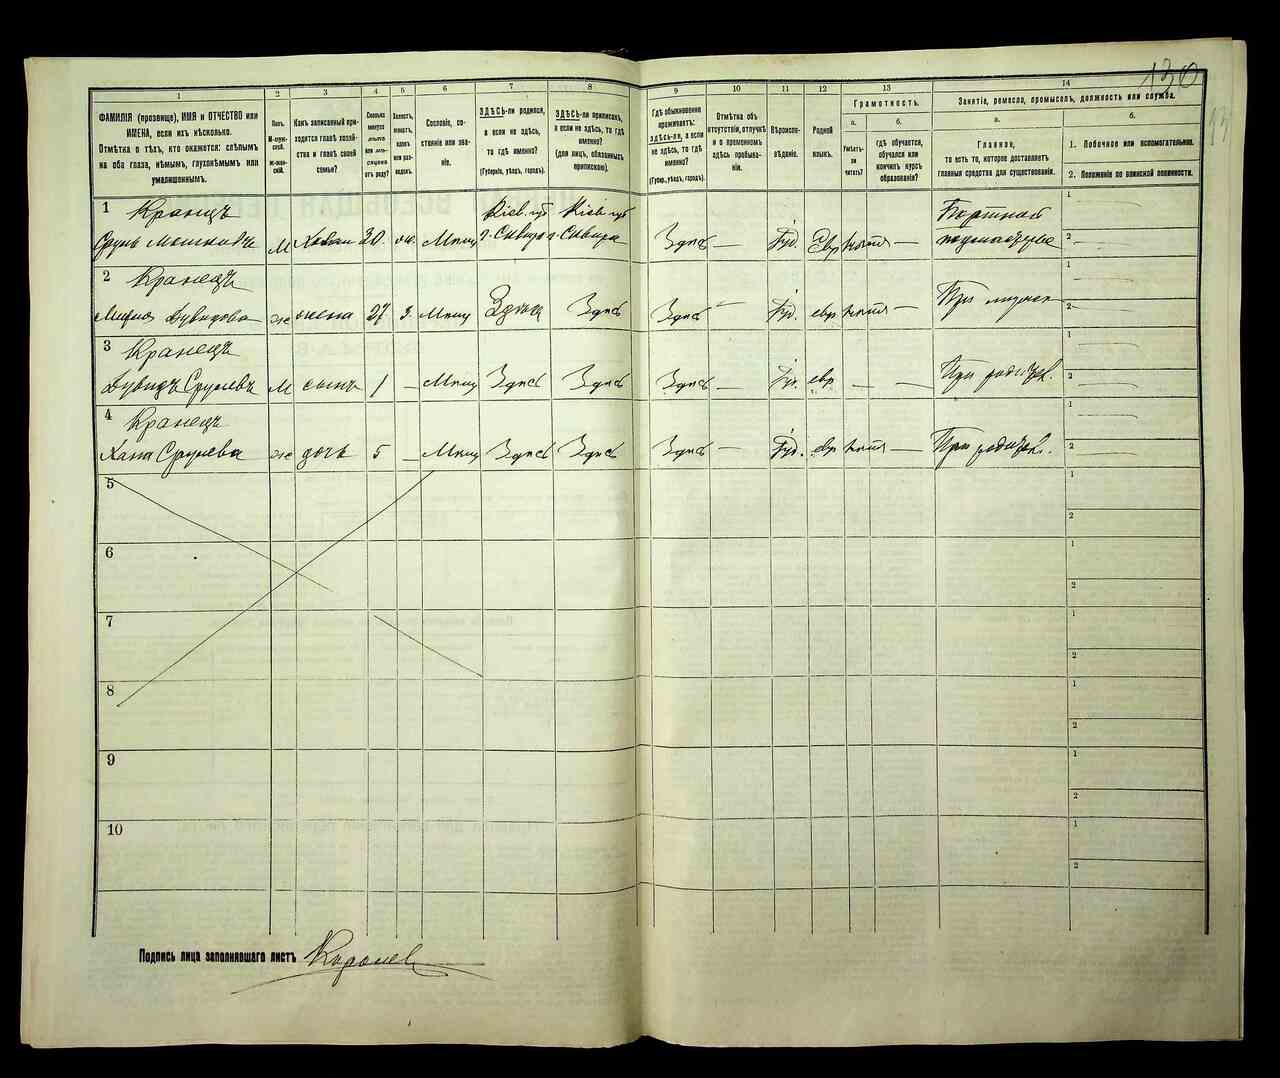 130
1 2 3 4 5 6 7 8 9 10 11 12 13 14
ФАМИЛІЯ (прозвище), ИМЯ и ОТЧЕСТВО или
ИМЕНА, если ихъ нѣсколько.
Отмѣтка о тѣхъ, кто окажется: слѣпымъ
на оба глаза, нѣмымъ, глухонѣмымъ или
умалишеннымъ.
Полъ.
М-муж-
ской.
Ж-жен-
скій.
Какъ записанный при-
ходится главѣ хозяй-
ства и главѣ своей
семьи?
Сколько
минуло
лѣтъ
или мѣ-
сяцевъ
отъ роду?
Холостъ,
женатъ,
вдовъ
или раз-
веденъ.
Сословіе, со-
стояніе или зва-
ніе.
ЗДѢСЬ-ли родился,
а если не здѣсь,
то гдѣ именно?
(Губернія, уѣздъ, городъ).
ЗДѢСЬ-ли приписанъ,
а если не здѣсь, то гдѣ
именно?
(для лицъ, обязанныхъ
припискою).
Гдѣ обыкновенно
проживаетъ:
здѣсь-ли, а если
не здѣсь, то гдѣ
именно?
(Губерн., уѣздъ, городъ).
Отмѣтка объ
отсутствіи, отлучкѣ
и о временномъ
здѣсь пребыва-
ніи.
Вѣроиспо-
вѣданіе.
Родной
языкъ.
Грамотность.
а. б.
Умѣетъ-
ли
читать?
гдѣ обучается,
обучался или
кончилъ курсъ
образованія?
Занятіе, ремесло, промыселъ, должность или служба.
а. б.
Главное,
то есть то, которое доставляетъ
главныя средства для существованія.
1. Побочное или вспомогательное.
2. Положеніе по воинской повинности.
1 Кранецъ
Сруль Мошковъ м Хозяин 30. Мѣщ Кіев. губ г. Сквира Кіев. губ г. Сквира Здѣсь — Іуд. Евр — Портной 1 2
2 Кранецъ
Дувидова же жена 27 З. Мѣщ Здѣсь Здѣсь Здѣсь — Іуд. евр — При мужѣ 1 2
3 Кранецъ
Дувидъ Срулевъ м сынъ 1 — Мѣщ Здѣсь Здѣсь Здѣсь — Іуд. евр — — При родител. 1 2
4 Кранецъ
Хана Срулева же дочь 5 — Мѣщ Здѣсь Здѣсь Здѣсь — Іуд. евр — При родител. 1 2
5 1 2
6 1 2
7 1 2
8 1 2
9 1 2
10 1 2
Подпись лица заполнявшаго листъ Королев